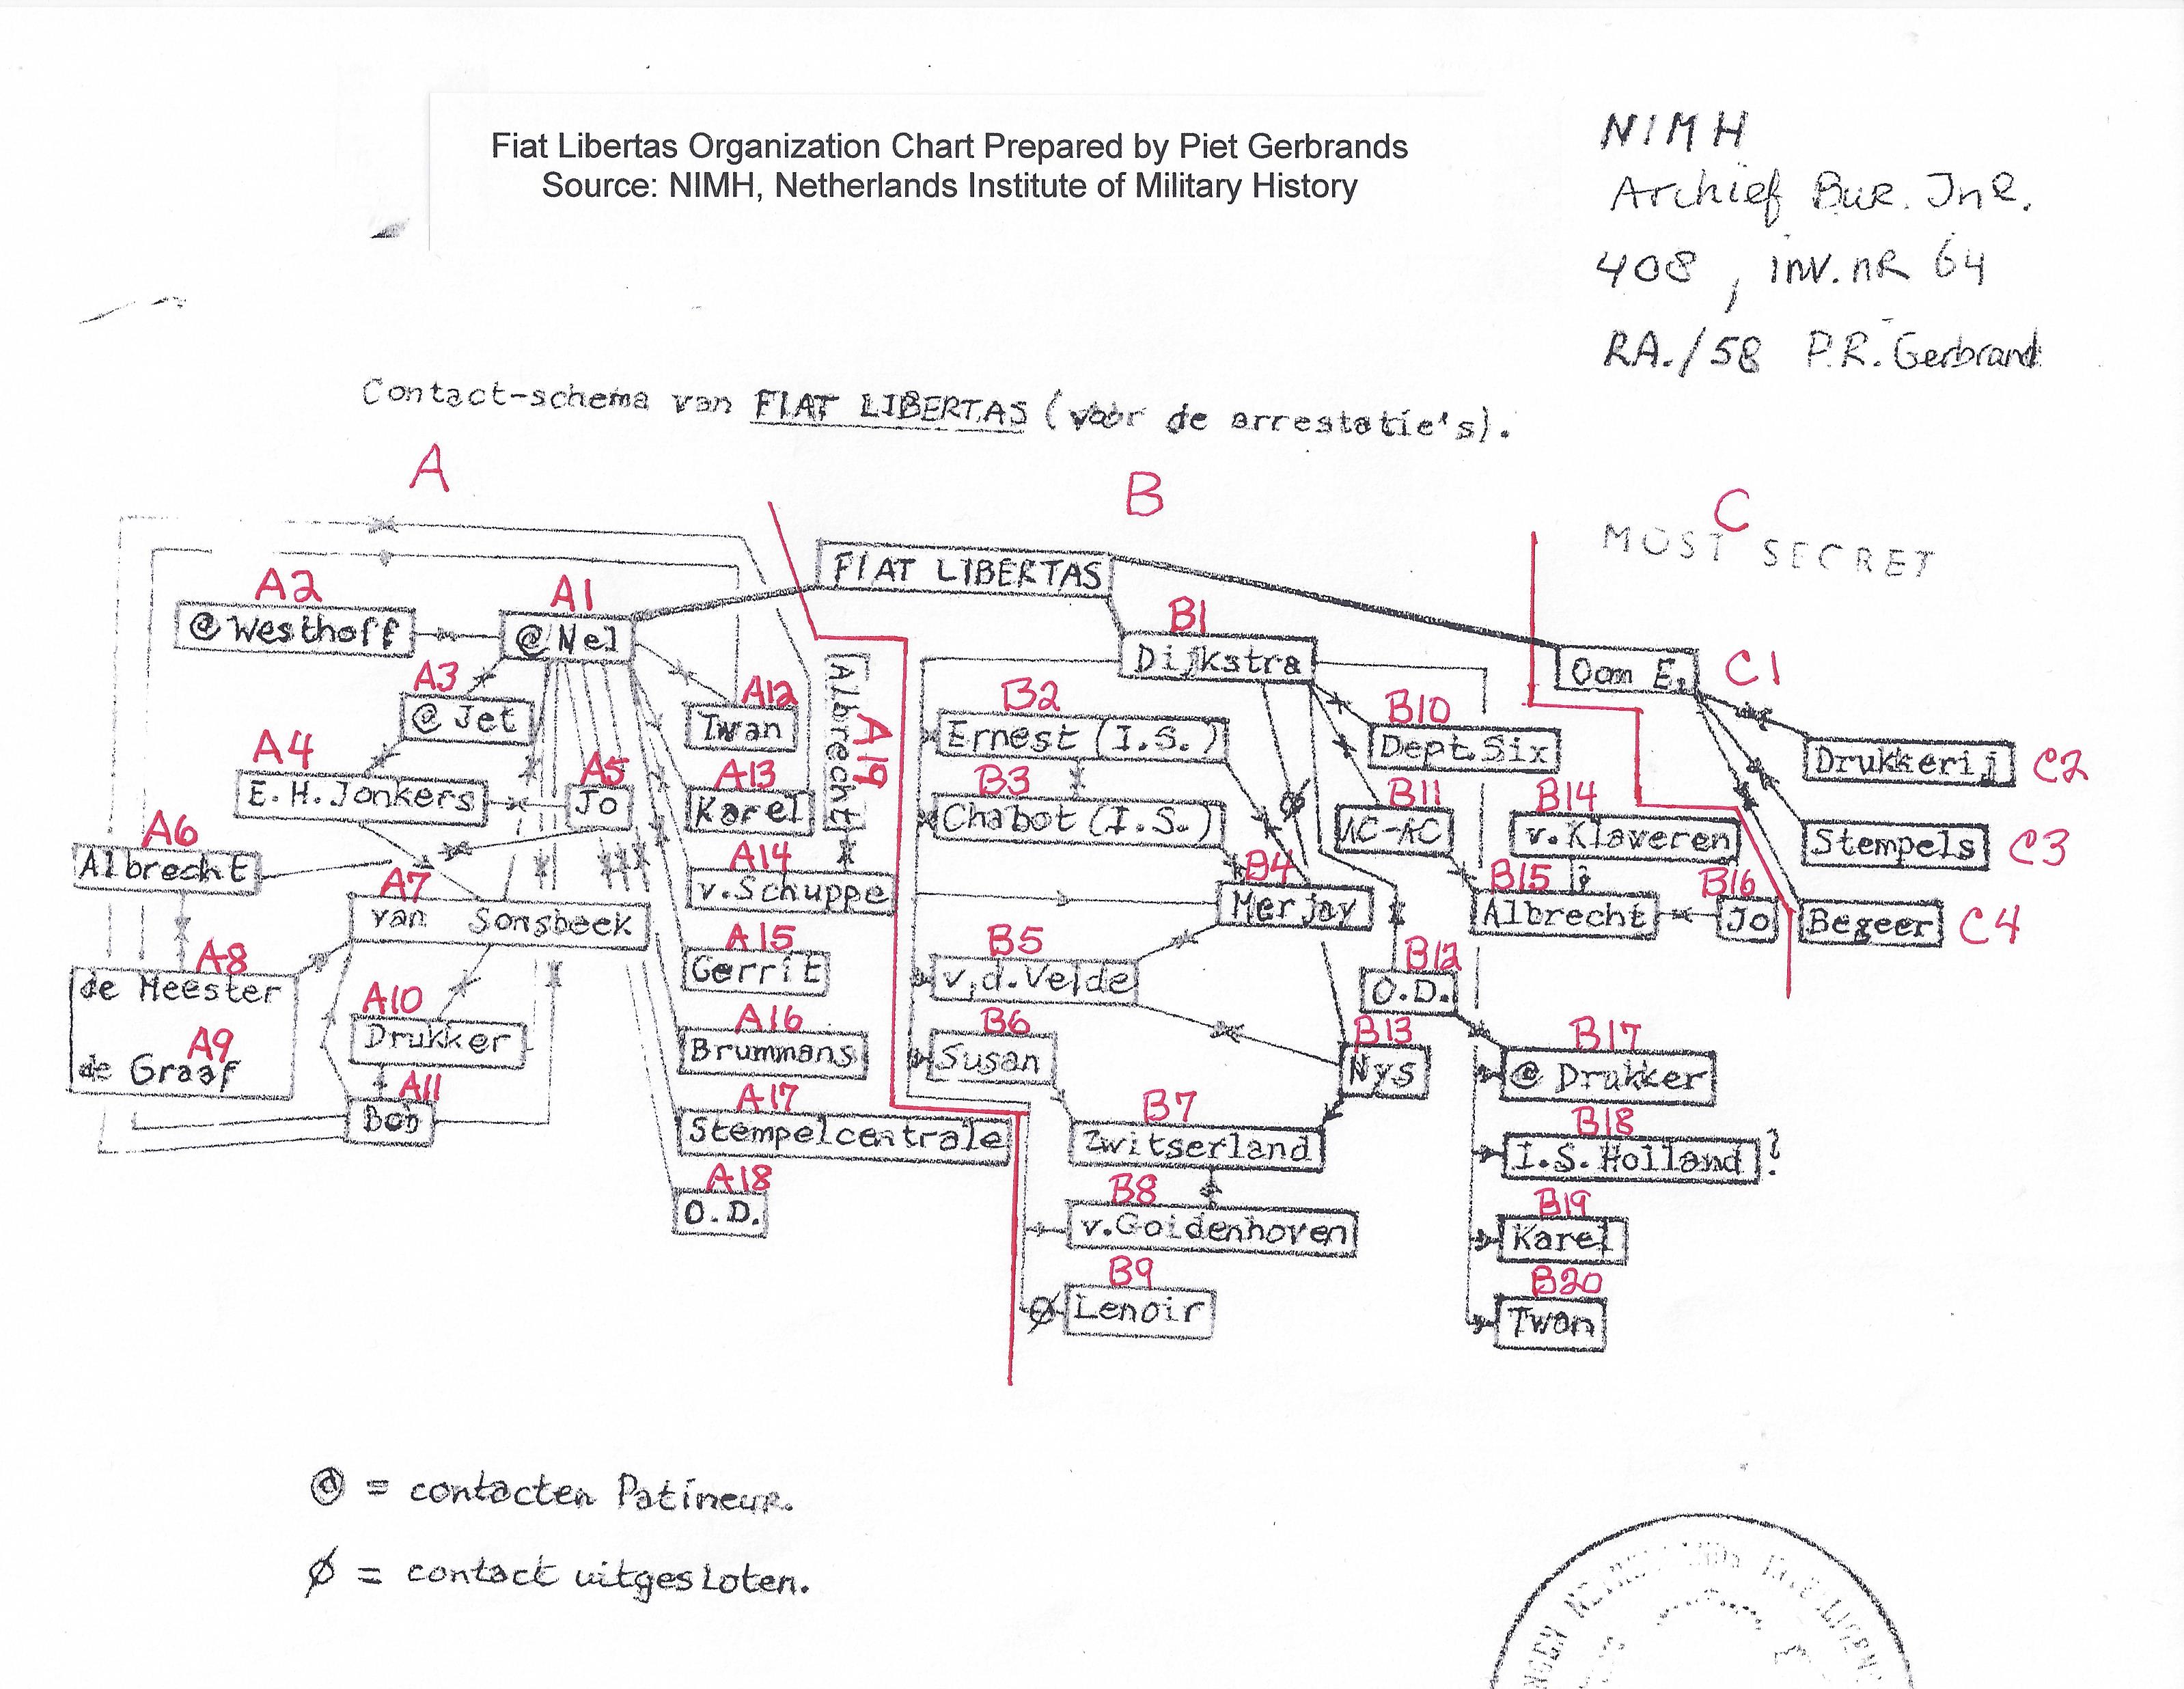 Fiat Libertas Organization Chart Prepared by Piet Gerbrands
Source: NIMH, Netherlands Institute of Military History
NIMH
Archief Bur. InR.
408, inv.nR 64
RA./58 P.R. Gerbrand
Contact-schema van FIAT LIBERTAS (voor de arrestatie's).
A
B
C
MOST SECRET
FIAT LIBERTAS
A1
@ Nel
A2
@ Westhoff
A3
@ Jet
A4
E.H. Jonkers
A5
Jo
A6
Albrecht
A7
van Sonsbeek
A8
de Meester
A9
de Graaf
A10
Drukker
A11
Bob
A12
Twan
A13
Karel
A14
v. Schuppe
A15
Gerrit
A16
Brummans
A17
Stempelcentrale
A18
O.D.
A19
Albrecht
B1
Dijkstra
B2
Ernest (I.S.)
B3
Chabot (I.S.)
B4
Merjay
B5
v.d. Velde
B6
Susan
B7
Zwitserland
B8
v. Goidenhoven
B9
Lenoir
B10
Dept. Six
B11
AC-AC
B12
O.D.
B13
Nys
B14
v. Klaveren
?
B15
Albrecht
B16
Jo
B17
@ Drukker
B18
I.S. Holland ?
B19
Karel
B20
Twan
C1
Oom E.
C2
Drukkerij
C3
Stempels
C4
Begeer
@ = contacten Patineur.
Ø = contact uitgesloten.